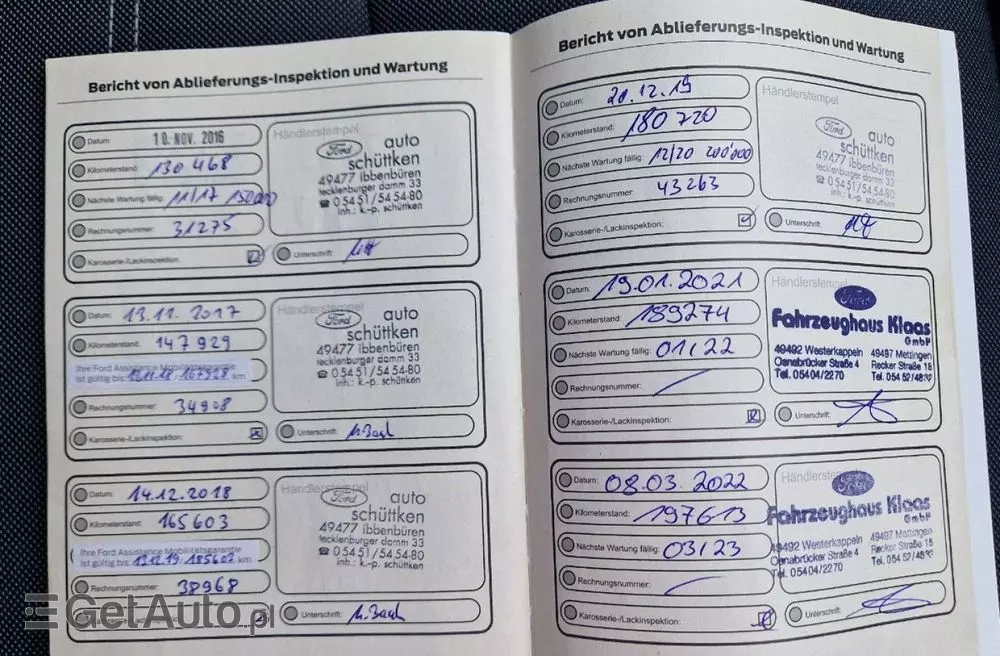 Bericht von Ablieferungs-Inspektion und Wartung
Datum: 10. NOV. 2016
Kilometerstand: 130 468
Nächste Wartung fällig: 11/17 150000
Rechnungsnummer: 31275
Karosserie-/Lackinspektion:
Händlerstempel
Ford auto
schüttken
49477 ibbenbüren
tecklenburger damm 33
☎ 0 54 51 / 54 54-80
inh.: k.-p. schüttken
Unterschrift:
Datum: 13.11.2017
Kilometerstand: 147929
Ihre Ford Assistance Mobilitätsgarantie
ist gültig bis: 12.11.18 / 167928 km
Rechnungsnummer: 34908
Karosserie-/Lackinspektion:
Händlerstempel
Ford auto
schüttken
49477 ibbenbüren
tecklenburger damm 33
☎ 0 54 51 / 54 54-80
inh.: k.-p. schüttken
Unterschrift:
Datum: 14.12.2018
Kilometerstand: 165603
Ihre Ford Assistance Mobilitätsgarantie
ist gültig bis: 13.12.19 / 185603 km
Rechnungsnummer: 38968
Händlerstempel
Ford auto
schüttken
49477 ibbenbüren
tecklenburger damm 33
☎ 0 54 51 / 54 54-80
inh.: k.-p. schüttken
Unterschrift:
Bericht von Ablieferungs-Inspektion und Wartung
Datum: 20.12.19
Kilometerstand: 180 720
Nächste Wartung fällig: 12/20 200'000
Rechnungsnummer: 43263
Karosserie-/Lackinspektion:
Händlerstempel
Ford auto
schüttken
49477 ibbenbüren
tecklenburger damm 33
☎ 0 54 51 / 54 54-80
inh.: k.-p. schüttken
Unterschrift:
Datum: 19.01.2021
Kilometerstand: 189274
Nächste Wartung fällig: 01/22
Rechnungsnummer:
Karosserie-/Lackinspektion:
Händlerstempel
Ford
Fahrzeughaus Klaas
GmbH
49492 Westerkappeln 49497 Mettingen
Osnabrücker Straße 4 Recker Straße 18
Tel. 05404/2270 Tel. 05452/48
Unterschrift:
Datum: 08.03.2022
Kilometerstand: 197613
Nächste Wartung fällig: 03/23
Rechnungsnummer:
Karosserie-/Lackinspektion:
Händlerstempel
Ford
Fahrzeughaus Klaas
GmbH
49492 Westerkappeln 49497 Mettingen
Osnabrücker Straße 4 Recker Straße 18
Tel. 05404/2270 Tel. 05452/48
Unterschrift:
GetAuto.pl